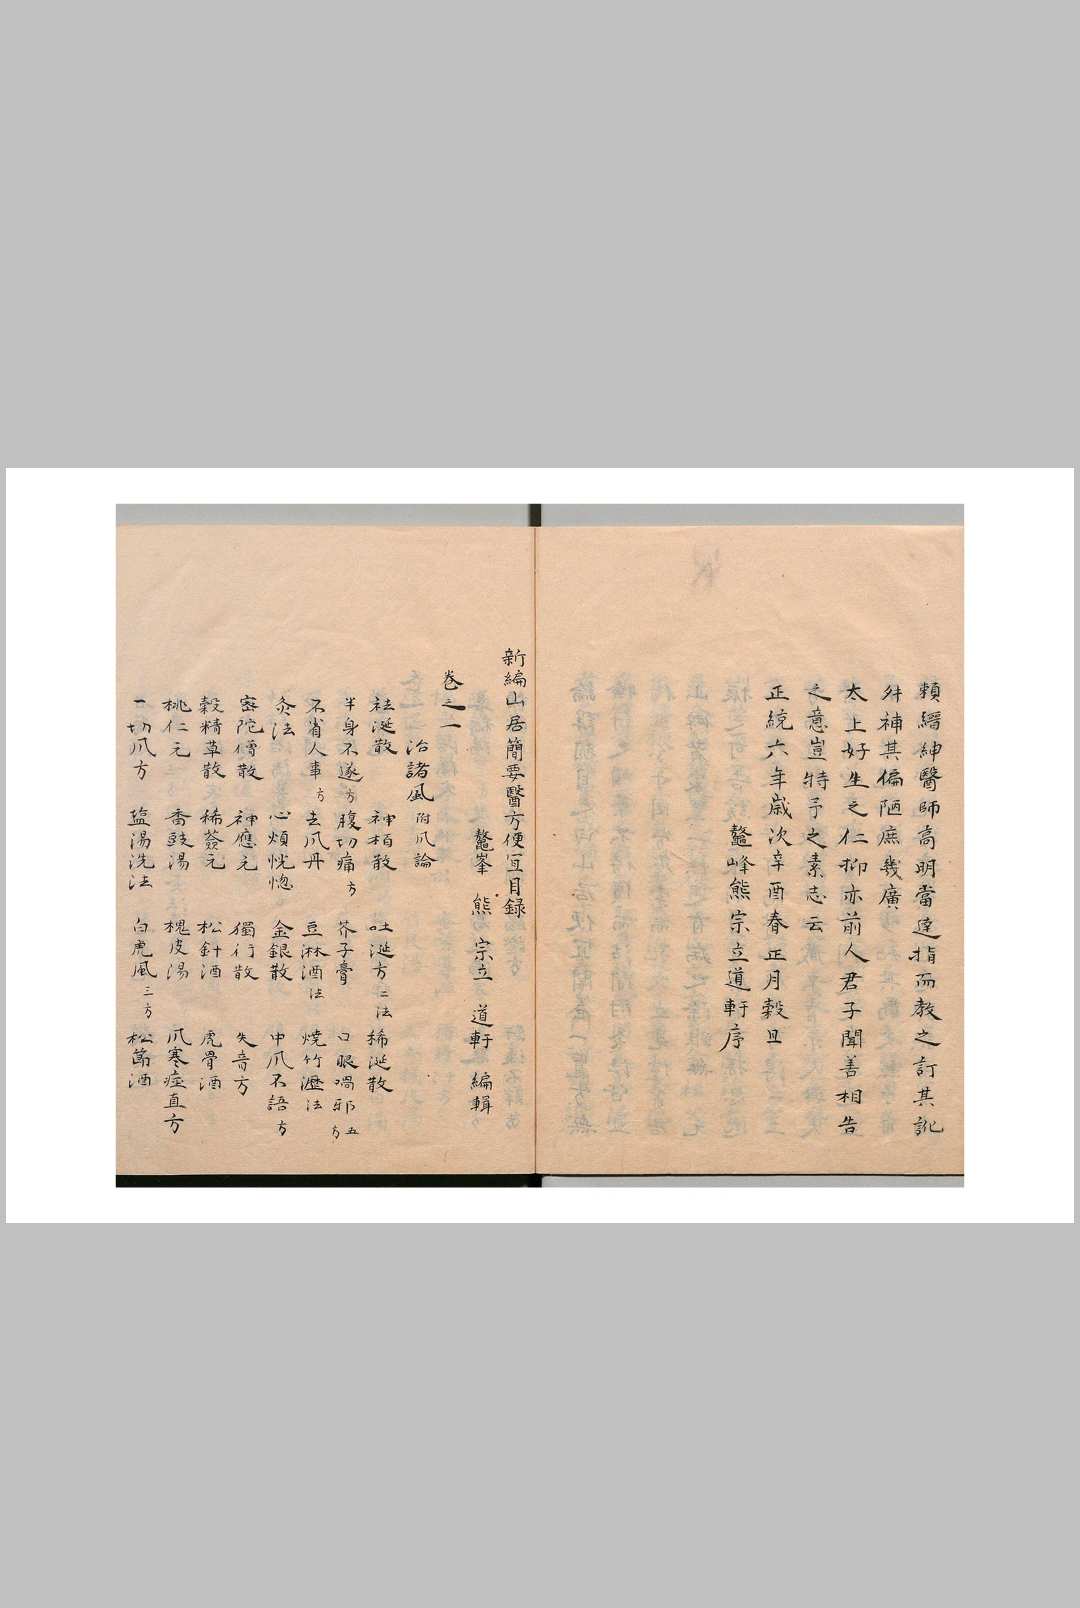 賴縉紳醫師高明當達指而教之訂其訛
舛補其偏陋庶幾廣
太上好生之仁抑亦前人君子聞善相告
之意豈特予之素志云
正統六年歲次辛酉春正月穀旦
鼇峰熊宗立道軒序
新編山居簡要醫方便宜目録
鼇峯 熊宗立 道軒 編輯
卷之一
治諸風 附風論
祛涎散 神柏散 吐涎方二法 稀涎散
半身不遂方 腹切痛方 芥子膏 口眼喎邪五方
不省人事方 去風丹 豆淋酒法 燒竹瀝法
灸法 心煩恍惚 金銀散 中風不語方
密陀僧散 神應元 獨行散 失音方
穀精草散 稀薟元 松針酒 虎骨酒
桃仁元 香豉湯 槐皮湯 風寒症直方
一切風方 塩湯洗法 白虎風三方 松節酒